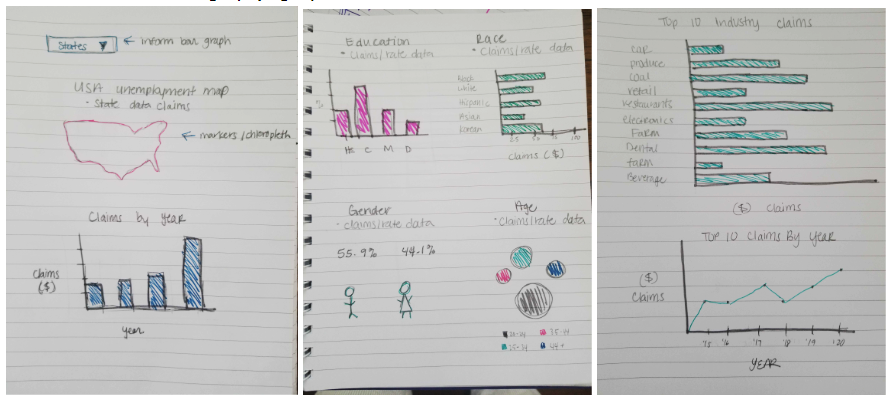 States ▼
← inform bar graph
USA unemployment map
• State data claims
← markers/chloropleth
Claims by year
Claims
($)
year
Education
• Claims/rate data
%
HS C M D
Race
• Claims/rate data
Black
White
Hispanic
Asian
Korean
25
100
Claims ($)
Gender
• claims/rate data
55.9% 44.1%
Age
• Claims/rate data
25-34
Top 10 Industry claims
car
produce
coal
retail
restaurants
electronics
Farm
Dental
farm
Beverage
($) Claims
Top 10 Claims By Year
($)
Claims
'15 '16 '17 '18 '19 '20
YEAR